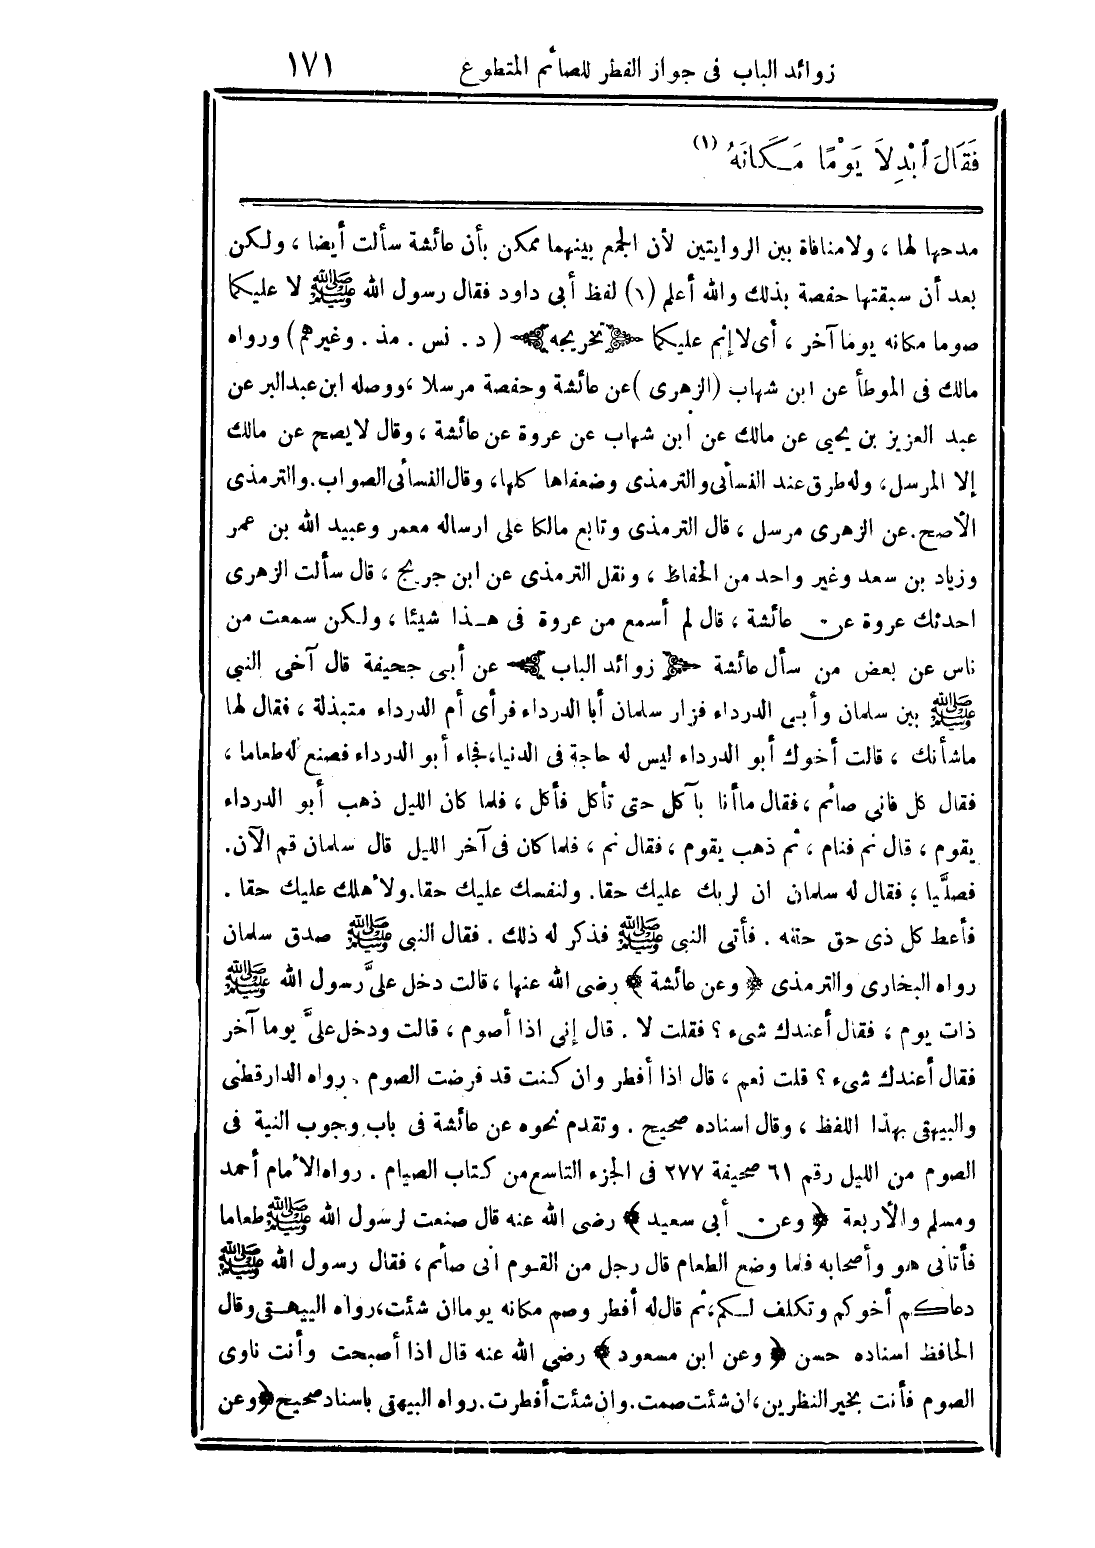 زوائد الباب فى جواز الفطر للصائم المتطوع ١٧١
فَقَالَ ٱبْدِلاَ يَوْمًا مَكَانَهُ (١)
مدحها لها ، ولا منافاة بين الروايتين لأن الجمع بينهما ممكن بأن عائشة سألت أيضا ، ولكن
بعد أن سبقتها حفصة بذلك والله أعلم (١) لفظ أبى داود فقال رسول الله ﷺ لا عليكما
صوما مكانه يوما آخر ، أى لا إثم عليكما ﴿ تخريجه ﴾ (د . نس . مذ . وغيرهم) ورواه
مالك فى الموطأ عن ابن شهاب (الزهرى) عن عائشة وحفصة مرسلا ، ووصله ابن عبد البر عن
عبد العزيز بن يحيى عن مالك عن ابن شهاب عن عروة عن عائشة ، وقال لا يصح عن مالك
إلا المرسل ، وله طرق عند النسائى والترمذى وضعفاها كلها ، وقال النسائى الصواب . والترمذى
الأصح . عن الزهرى مرسل ، قال الترمذى وتابع مالكا على ارساله معمر وعبيد الله بن عمر
وزياد بن سعد وغير واحد من الحفاظ ، ونقل الترمذى عن ابن جريج ، قال سألت الزهرى
احدثك عروة عن عائشة ، قال لم أسمع من عروة فى هذا شيئا ، ولكن سمعت من
ناس عن بعض من سأل عائشة ﴿ زوائد الباب ﴾ عن أبى جحيفة قال آخى النبى
ﷺ بين سلمان وأبى الدرداء فزار سلمان أبا الدرداء فرأى أم الدرداء متبذلة ، فقال لها
ماشأنك ، قالت أخوك أبو الدرداء ليس له حاجة فى الدنيا ، فجاء أبو الدرداء فصنع له طعاما ،
فقال كل فاني صائم ، فقال ماأنا بآكل حتى تأكل فأكل ، فلما كان الليل ذهب أبو الدرداء
يقوم ، قال نم فنام ، ثم ذهب يقوم ، فقال نم ، فلما كان فى آخر الليل قال سلمان قم الآن.
فصلَّيا ؛ فقال له سلمان ان لربك عليك حقا . ولنفسك عليك حقا . ولأهلك عليك حقا .
فأعط كل ذى حق حقه . فأتى النبى ﷺ فذكر له ذلك . فقال النبى ﷺ صدق سلمان
رواه البخارى والترمذى ﴿ وعن عائشة ﴾ رضى الله عنها ، قالت دخل علىَّ رسول الله ﷺ
ذات يوم ، فقال أعندك شىء ؟ فقلت لا . قال إنى اذا أصوم ، قالت ودخل علىَّ يوما آخر
فقال أعندك شىء ؟ قلت نعم ، قال اذا أفطر وان كنت قد فرضت الصوم . رواه الدارقطنى
والبيهقى بهذا اللفظ ، وقال اسناده صحيح . وتقدم نحوه عن عائشة فى باب وجوب النية فى
الصوم من الليل رقم ٦١ صحيفة ٢٧٧ فى الجزء التاسع من كتاب الصيام . رواه الأمام أحمد
ومسلم والأربعة ﴿ وعن أبى سعيد ﴾ رضى الله عنه قال صنعت لرسول الله ﷺ طعاما
فأتانى هو وأصحابه فلما وضع الطعام قال رجل من القوم انى صائم ، فقال رسول الله ﷺ
دعاكم أخوكم وتكلف لكم ، ثم قال له أفطر وصم مكانه يوما ان شئت ، رواه البيهقى وقال
الحافظ اسناده حسن ﴿ وعن ابن مسعود ﴾ رضى الله عنه قال اذا أصبحت وأنت ناوى
الصوم فأنت بخير النظرين ، ان شئت صمت . وان شئت أفطرت . رواه البيهقى باسناد صحيح ﴿ وعن